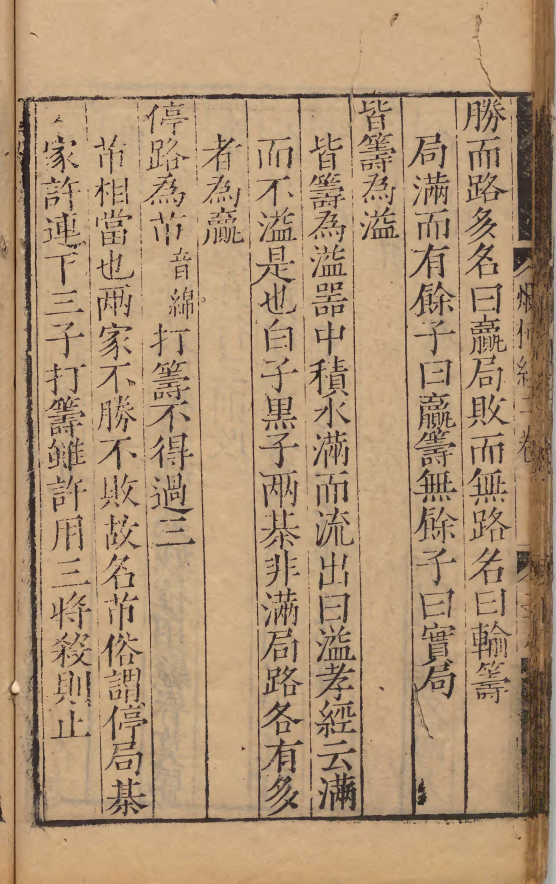 勝而路多名曰贏局敗而無路名曰輸籌
局滿而有餘子曰贏籌無餘子曰實局
皆籌為溢
皆籌為溢器中積水滿而流出曰溢孝經云滿
而不溢是也白子黑子兩棊非滿局路各有多
者為贏
停路為芇音綿打籌不得過三
芇相當也兩家不勝不敗故名芇俗謂停局棊
家許連下三子打籌雖許用三將殺則止